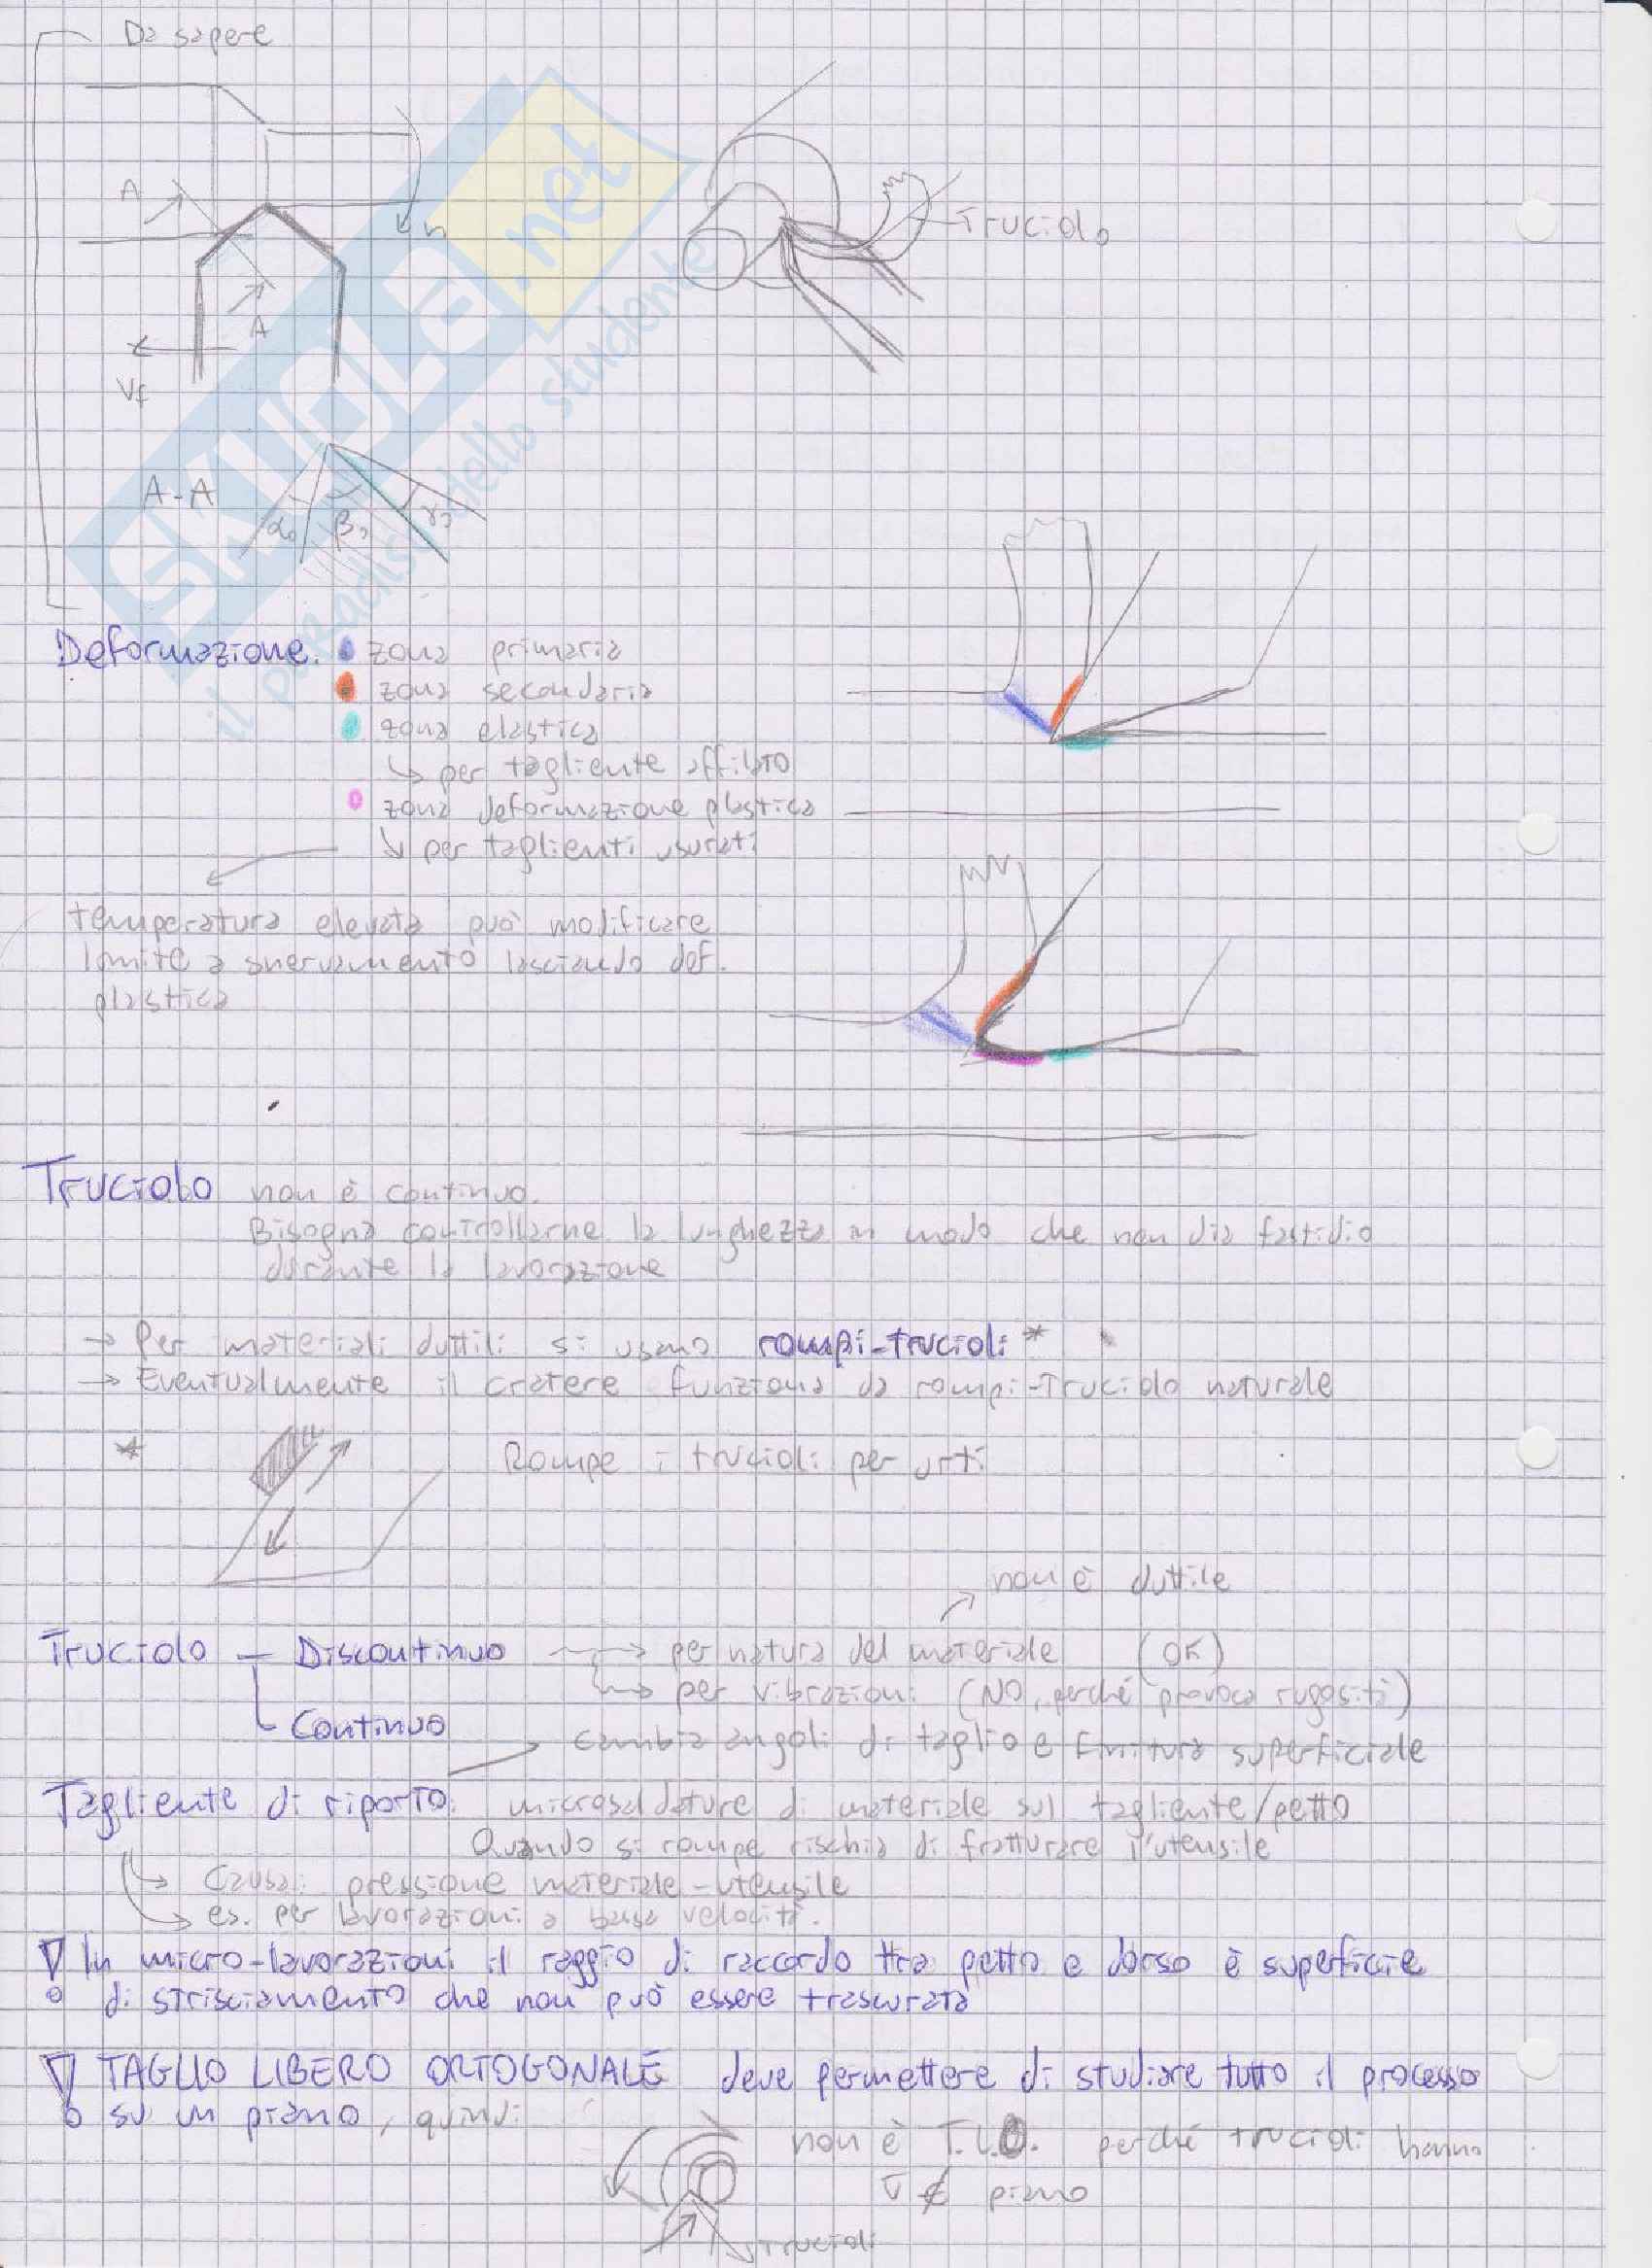 Da sapere
A
n
Truciolo
A
Vf
A-A
α₀
β₀
γ₀
SKUOLA.net
il paradiso dello studente
Deformazione. zona primaria
zona secondaria
zona elastica
↳ per tagliente affilato
zona deformazione plastica
↳ per taglienti usurati
temperatura elevata può modificare
limite a snervamento lasciando def.
plastica
Truciolo non è continuo.
Bisogna controllarne la lunghezza in modo che non dia fastidio
durante la lavorazione
→ Per materiali duttili si usano rompi-trucioli *
→ Eventualmente il cratere funziona da rompi-truciolo naturale
* Rompe i trucioli per urti
non è duttile
Truciolo - Discontinuo → per natura del materiale (OK)
→ per vibrazioni (NO, perché provoca rugosità)
Continuo
cambia angoli di taglio e finitura superficiale
Tagliente di riporto: microsaldature di materiale sul tagliente/petto
Quando si rompe rischia di fratturare l'utensile
↳ Causa: pressione materiale-utensile
→ es. per lavorazioni a bassa velocità.
In micro-lavorazioni il raggio di raccordo tra petto e dorso è superficie
di strisciamento che non può essere trascurata
TAGLIO LIBERO ORTOGONALE deve permettere di studiare tutto il processo
su un piano, quindi
non è T.L.O. perché trucioli hanno
v ∉ piano
trucioli